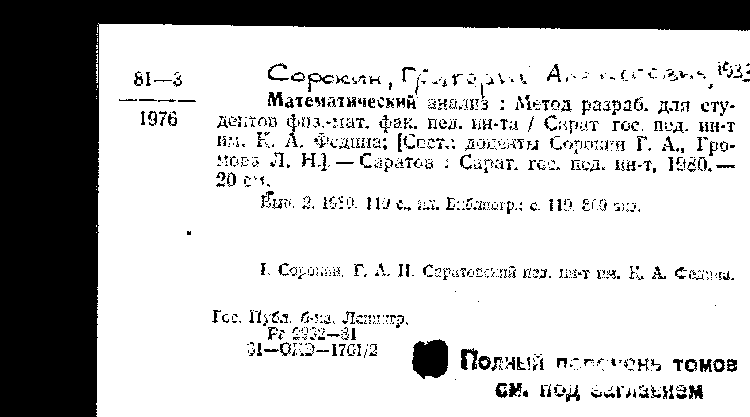 81—3
1976
Сорокин, Григорий 1933
Математический анализ : Метод разраб. для сту-
дентов физ.-мат. фак. пед. ин-та / Сарат гос. пед. ин-т
им. К. А. Федина; [Сост.: доценты Сорокин Г. А., Гро-
мова Л. Н.]. — Саратов : Сарат. гос. пед. ин-т, 1980. —
20 см.
Вып. 2. 1980. 119 с., ил. Библиогр.: с. 119. 800 экз.
I. Сорокин, Г. А. II. Саратовский пед. ин-т им. К. А. Федина.
Гос. Публ. б-ка. Ленингр.
81—
Полный перечень томов
см. под заглавием